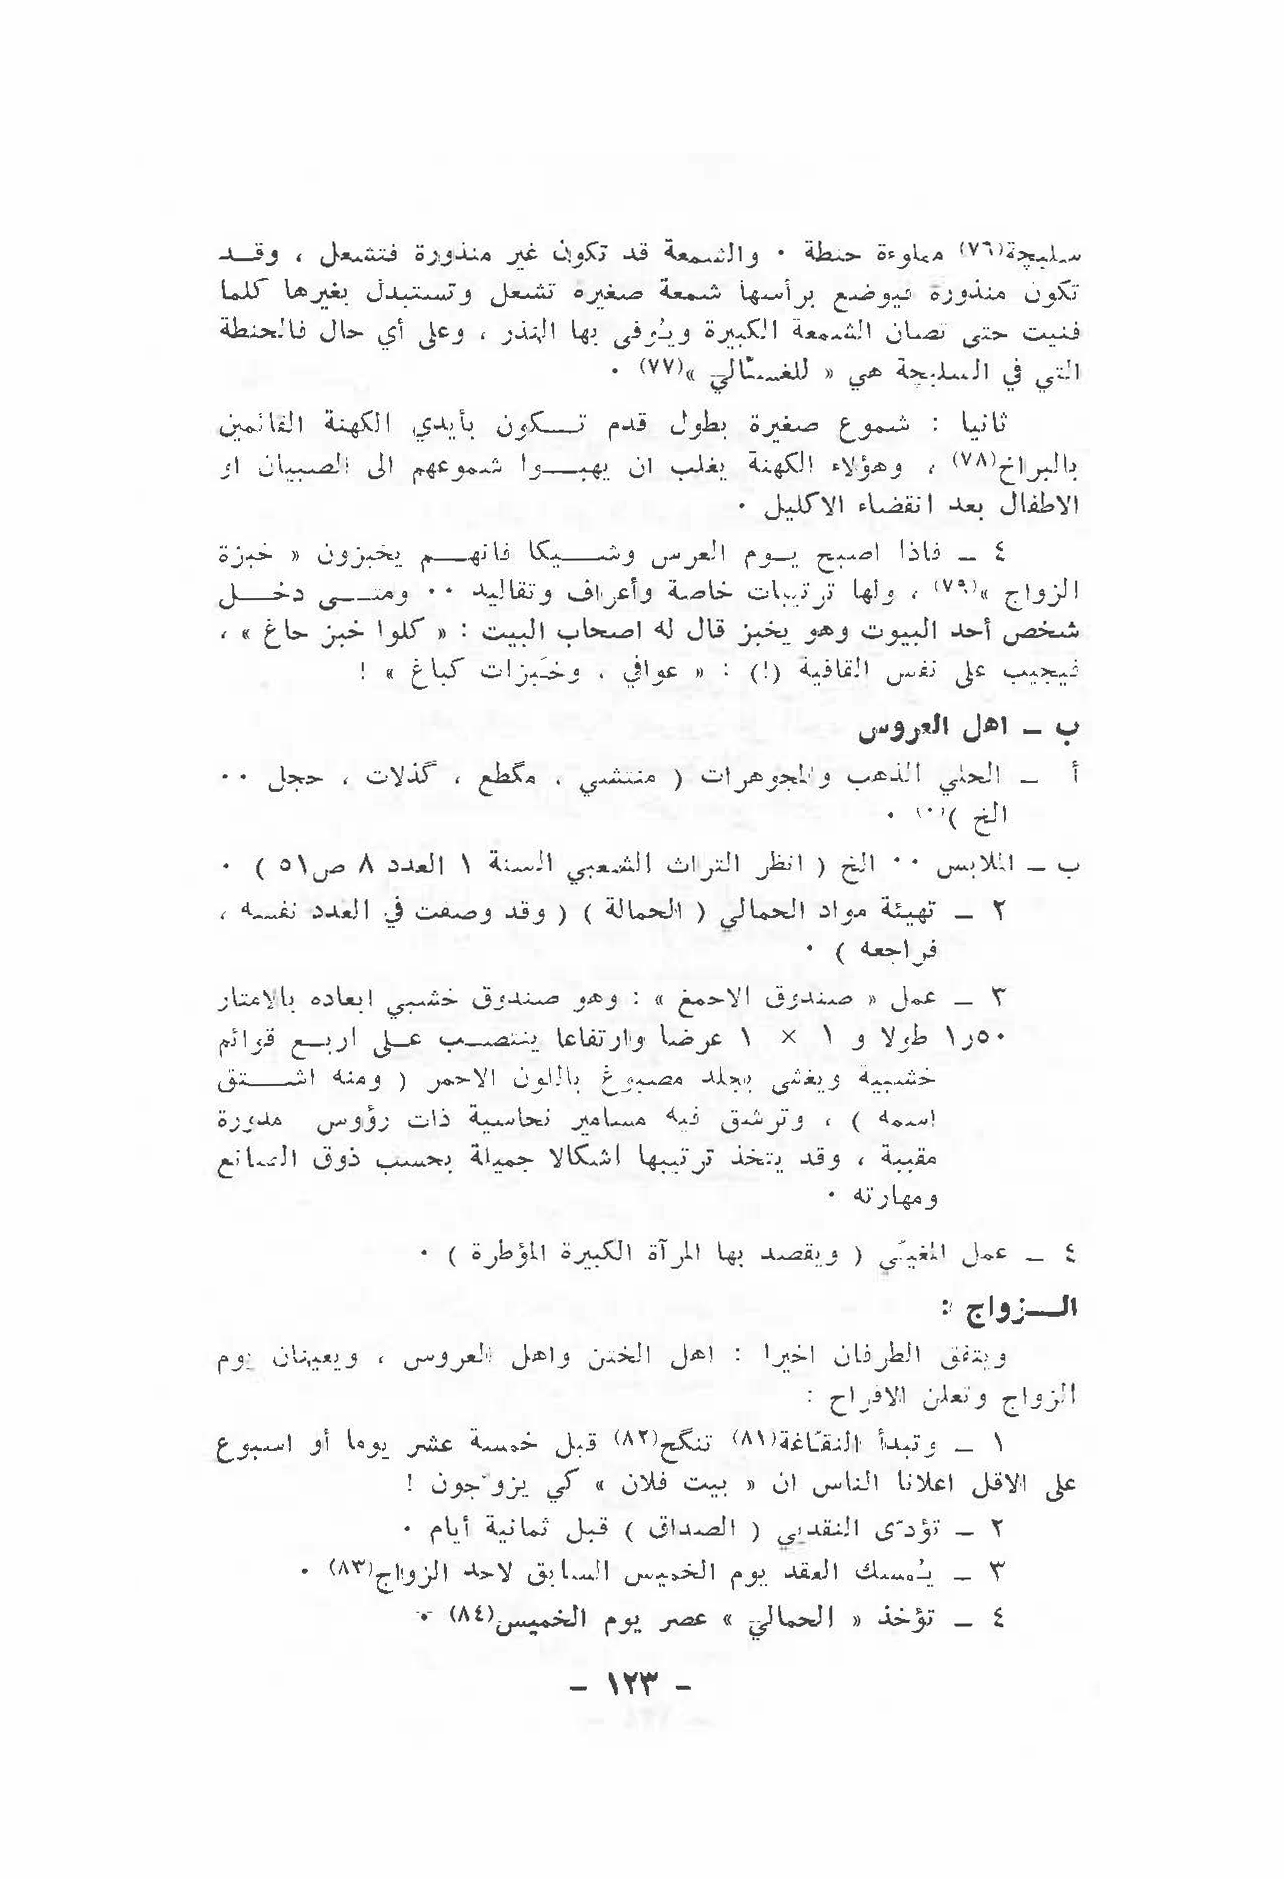 سليچة(٧٦) مملوءة حنطة · والشمعة قد تكون غير منذورة فتشعل ، وقد
تكون منذورة فيوضع برأسها شمعة صغيرة تشعل وتستبدل بغيرها كلما
فنيت حتى تصان الشمعة الكبيرة ويُوفى بها النذر ، وعلى أي حال فالحنطة
التي في السليچة هي « للغسّالي »(٧٧) ·
ثانيا : شموع صغيرة بطول قدم تكون بأيدي الكهنة القائمين
بالبراخ(٧٨) ، وهؤلاء الكهنة يغلب ان يهبوا شموعهم الى الصبيان او
الاطفال بعد انقضاء الاكليل ·
٤ ـ فاذا اصبح يوم العرس وشيكا فانهم يخبزون « خبزة
الزواج »(٧٩) ، ولها ترتيبات خاصة وأعراف وتقاليد ·· ومتى دخل
شخص أحد البيوت وهو يخبز قال له اصحاب البيت : « كلوا خبز حاغ » ،
فيجيب على نفس القافية (!) : « عوافي ، وخبزات كباغ » !
ب ـ اهل العروس
أ ـ الحلي الذهب والمجوهرات ( منتشي ، مگطع ، گذلات ، حجل ··
الخ ) ·
ب ـ الملابس ·· الخ ( انظر التراث الشعبي السنة ١ العدد ٨ ص٥١ ) ·
٢ ـ تهيئة مواد الحمالي ( الحمالة ) ( وقد وصفت في العدد نفسه ،
فراجعه ) ·
٣ ـ عمل « صندوق الاحمغ » : وهو صندوق خشبي ابعاده بالامتار
٥٠ر١ طولا و ١ × ١ عرضا وارتفاعا ينتصب على اربع قوائم
خشبية ويغشى بجلد مصبوغ باللون الاحمر ( ومنه اشتق
اسمه ) ، وترشق فيه مسامير نحاسية ذات رؤوس مدورة
مقببة ، وقد يتخذ ترتيبها اشكالا جميلة بحسب ذوق الصانع
ومهارته ·
٤ ـ عمل المغيّي ( ويقصد بها المرآة الكبيرة المؤطرة ) ·
الــزواج :
ويتفق الطرفان اخيرا : اهل الختن واهل العروس ، ويعينان يوم
الزواج وتعلن الافراح :
١ ـ وتبدأ النقّاغة(٨١) تنگح(٨٢) قبل خمسة عشر يوما أو اسبوع
على الاقل اعلانا الناس ان « بيت فلان » كي يزوّجون !
٢ ـ تؤدّى النقدبي ( الصداق ) قبل ثمانية أيام ·
٣ ـ يُمسك العقد يوم الخميس السابق لاحد الزواج(٨٣) ·
٤ ـ تؤخذ « الحمالي » عصر يوم الخميس(٨٤) ·
ـ ١٢٣ ـ